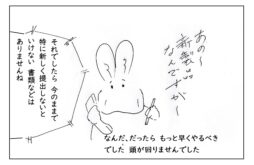 あの〜
新製品
なんですが〜
それでしたら 今のままで
特に新しく提出しないと
いけない 書類などは
ありませんね
なんだ、だったら もっと早くやるべき
でした 頭が回りませんでした